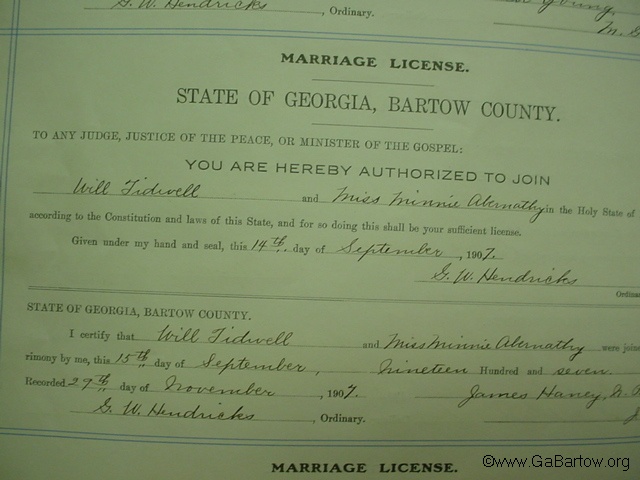 G. W. Hendricks, Ordinary.
MARRIAGE LICENSE.
STATE OF GEORGIA, BARTOW COUNTY.
TO ANY JUDGE, JUSTICE OF THE PEACE, OR MINISTER OF THE GOSPEL:
YOU ARE HEREBY AUTHORIZED TO JOIN
Will Tidwell and Miss Minnie Abernathy in the Holy State of
according to the Constitution and laws of this State, and for so doing this shall be your sufficient license.
Given under my hand and seal, this 14th. day of September, 1907.
G. W. Hendricks
Ordina
STATE OF GEORGIA, BARTOW COUNTY.
I certify that Will Tidwell and Miss Minnie Abernathy were join
rimony by me, this 15th day of September, Nineteen Hundred and seven.
Recorded 29th day of November, 1907. James Haney,
G. W. Hendricks, Ordinary.
MARRIAGE LICENSE.
©www.GaBartow.org